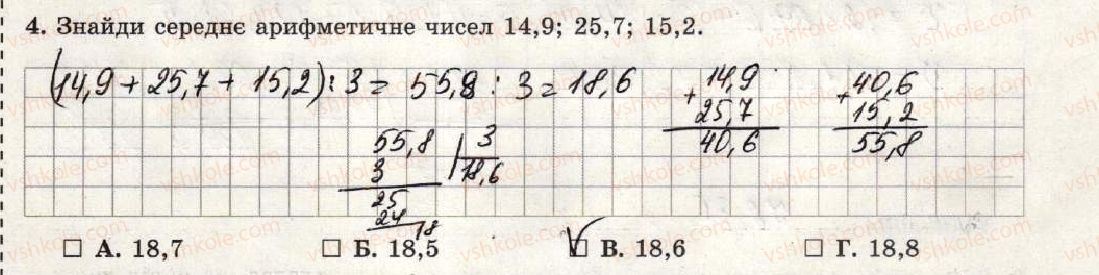 4. Знайди середнє арифметичне чисел 14,9; 25,7; 15,2.
(14,9 + 25,7 + 15,2) : 3 = 55,8 : 3 = 18,6
+14,9
25,7
40,6
+40,6
15,2
55,8
55,8 3
3 18,6
25
24
18
А. 18,7 Б. 18,5 В. 18,6 Г. 18,8
vshkole.com